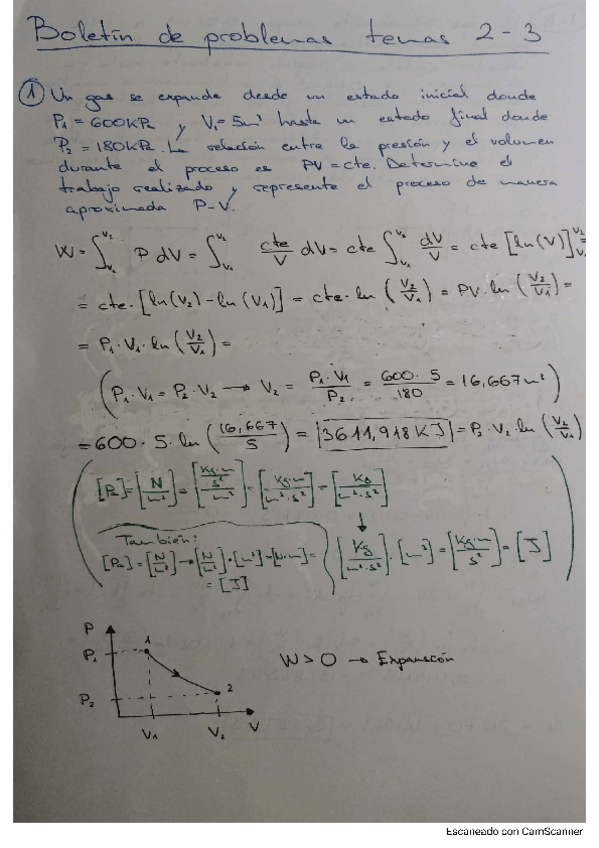 Boletín de problemas temas 2-3
① Un gas se expande desde un estado inicial donde
P₁ = 600KPa y V₁ = 5m³ hasta un estado final donde
P₂ = 180KPa. La relación entre la presión y el volumen
durante el proceso es PV = cte. Determine el
trabajo realizado y represente el proceso de manera
aproximada P-V.
W = ∫ P dV = ∫ cte/V dV = cte ∫ dV/V = cte [ln(V)] =
= cte · [ln(V₂) - ln(V₁)] = cte · ln (V₂/V₁) = PV · ln (V₂/V₁) =
= P₁ · V₁ · ln (V₂/V₁) =
(P₁ · V₁ = P₂ · V₂ → V₂ = P₁ · V₁/P₂ = 600 · 5/180 = 16,667m³)
= 600 · 5 · ln (16,667/5) = 3611,918KJ = P₂ · V₂ · ln (V₂/V₁)
[Pa] = [N/m²] = [Kg·m/s²/m²] = [Kg·m/m²·s²] = [Kg/m·s²]
También:
[Pa] = [N/m²] → [N/m²] · [m³] = [N·m] =
= [J]
· [m³] =
= [J]
P
P₁
P₂
1
2
V₁
V₂
V
W > 0 → Expansión
Escaneado con CamScanner